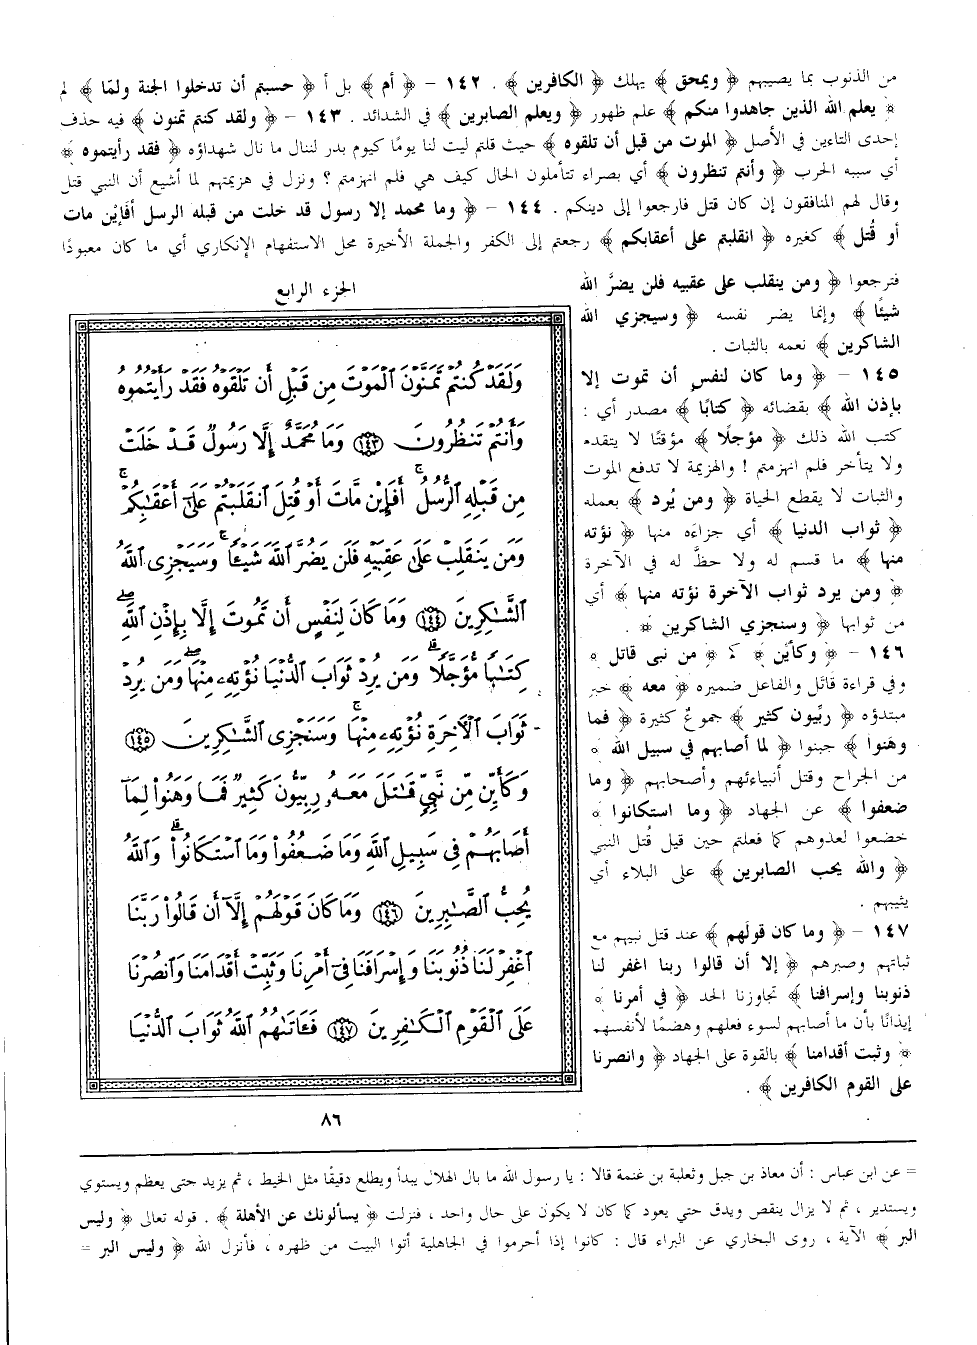 من الذنوب بما يصيبهم ﴿ ويمحق ﴾ يهلك ﴿ الكافرين ﴾ . ١٤٢ – ﴿ أم ﴾ بل أ ﴿ حسبتم أن تدخلوا الجنة ولمّا ﴾ لم
﴿ يعلم الله الذين جاهدوا منكم ﴾ علم ظهور ﴿ ويعلم الصابرين ﴾ في الشدائد . ١٤٣ – ﴿ ولقد كنتم تمنون ﴾ فيه حذف
إحدى التاءين في الأصل ﴿ الموت من قبل أن تلقوه ﴾ حيث قلتم ليت لنا يومًا كيوم بدر لننال ما نال شهداؤه ﴿ فقد رأيتموه ﴾
أي سببه الحرب ﴿ وأنتم تنظرون ﴾ أي بصراء تتأملون الحال كيف هي فلم انهزمتم ؟ ونزل في هزيمتهم لما أشيع أن النبي قتل
وقال لهم المنافقون إن كان قتل فارجعوا إلى دينكم . ١٤٤ – ﴿ وما محمد إلا رسول قد خلت من قبله الرسل أفَإيْن مات
أو قُتل ﴾ كغيره ﴿ انقلبتم على أعقابكم ﴾ رجعتم إلى الكفر والجملة الأخيرة محل الاستفهام الإنكاري أي ما كان معبودًا
فترجعوا ﴿ ومن ينقلب على عقبيه فلن يضرَّ الله
شيئًا ﴾ وإنما يضر نفسه ﴿ وسيجزي الله
الشاكرين ﴾ نعمه بالثبات .
١٤٥ – ﴿ وما كان لنفس أن تموت إلا
بإذن الله ﴾ بقضائه ﴿ كتابًا ﴾ مصدر أي :
كتب الله ذلك ﴿ مؤجلًا ﴾ مؤقتًا لا يتقدم
ولا يتأخر فلم انهزمتم ! والهزيمة لا تدفع الموت
والثبات لا يقطع الحياة ﴿ ومن يُرد ﴾ بعمله
﴿ ثواب الدنيا ﴾ أي جزاءه منها ﴿ نؤته
منها ﴾ ما قسم له ولا حظَّ له في الآخرة
﴿ ومن يرد ثواب الآخرة نؤته منها ﴾ أي
من ثوابها ﴿ وسنجزي الشاكرين ﴾ .
١٤٦ – ﴿ وكأيّن ﴾ كم ﴿ من نبي قاتل ﴾
وفي قراءة قاتَل والفاعل ضميره ﴿ معه ﴾ خبر
مبتدؤه ﴿ ربّيون كثير ﴾ جموعٌ كثيرة ﴿ فما
وهَنوا ﴾ جبنوا ﴿ لما أصابهم في سبيل الله ﴾
من الجراح وقتل أنبيائهم وأصحابهم ﴿ وما
ضعفوا ﴾ عن الجهاد ﴿ وما استكانوا ﴾
خضعوا لعدوهم كما فعلتم حين قيل قُتل النبي
﴿ والله يحب الصابرين ﴾ على البلاء أي
يثيبهم .
١٤٧ – ﴿ وما كان قولَهم ﴾ عند قتل نبيهم مع
ثباتهم وصبرهم ﴿ إلا أن قالوا ربنا اغفر لنا
ذنوبنا وإسرافنا ﴾ تجاوزنا الحد ﴿ في أمرنا ﴾
إيذانًا بأن ما أصابهم لسوء فعلهم وهضمًا لأنفسهم
﴿ وثبت أقدامنا ﴾ بالقوة على الجهاد ﴿ وانصرنا
على القوم الكافرين ﴾ .
الجزء الرابع
وَلَقَدْ كُنتُمْ تَمَنَّوْنَ ٱلْمَوْتَ مِن قَبْلِ أَن تَلْقَوْهُ فَقَدْ رَأَيْتُمُوهُ
وَأَنتُمْ تَنظُرُونَ ﴿١٤٣﴾ وَمَا مُحَمَّدٌ إِلَّا رَسُولٌ قَدْ خَلَتْ
مِن قَبْلِهِ ٱلرُّسُلُ ۚ أَفَإِيْن مَّاتَ أَوْ قُتِلَ ٱنقَلَبْتُمْ عَلَىٰٓ أَعْقَـٰبِكُمْ ۚ
وَمَن يَنقَلِبْ عَلَىٰ عَقِبَيْهِ فَلَن يَضُرَّ ٱللَّهَ شَيْـًٔا ۗ وَسَيَجْزِى ٱللَّهُ
ٱلشَّـٰكِرِينَ ﴿١٤٤﴾ وَمَا كَانَ لِنَفْسٍ أَن تَمُوتَ إِلَّا بِإِذْنِ ٱللَّهِ
كِتَـٰبًا مُّؤَجَّلًا ۗ وَمَن يُرِدْ ثَوَابَ ٱلدُّنْيَا نُؤْتِهِۦ مِنْهَا ۖ وَمَن يُرِدْ
ثَوَابَ ٱلْـَٔاخِرَةِ نُؤْتِهِۦ مِنْهَا ۚ وَسَنَجْزِى ٱلشَّـٰكِرِينَ ﴿١٤٥﴾
وَكَأَيِّن مِّن نَّبِىٍّ قَـٰتَلَ مَعَهُۥ رِبِّيُّونَ كَثِيرٌ فَمَا وَهَنُوا۟ لِمَآ
أَصَابَهُمْ فِى سَبِيلِ ٱللَّهِ وَمَا ضَعُفُوا۟ وَمَا ٱسْتَكَانُوا۟ ۗ وَٱللَّهُ
يُحِبُّ ٱلصَّـٰبِرِينَ ﴿١٤٦﴾ وَمَا كَانَ قَوْلَهُمْ إِلَّآ أَن قَالُوا۟ رَبَّنَا
ٱغْفِرْ لَنَا ذُنُوبَنَا وَإِسْرَافَنَا فِىٓ أَمْرِنَا وَثَبِّتْ أَقْدَامَنَا وَٱنصُرْنَا
عَلَى ٱلْقَوْمِ ٱلْكَـٰفِرِينَ ﴿١٤٧﴾ فَـَٔاتَىٰهُمُ ٱللَّهُ ثَوَابَ ٱلدُّنْيَا
٨٦
= عن ابن عباس : أن معاذ بن جبل وثعلبة بن غنمة قالا : يا رسول الله ما بال الهلال يبدأ ويطلع دقيقًا مثل الخيط ، ثم يزيد حتى يعظم ويستوي
ويستدير ، ثم لا يزال ينقص ويدق حتي يعود كما كان لا يكون على حال واحد ، فنزلت ﴿ يسألونك عن الأهلة ﴾ . قوله تعالى ﴿ وليس
البر ﴾ الآية ، روى البخاري عن البراء قال : كانوا إذا أحرموا في الجاهلية أتوا البيت من ظهره ، فأنزل الله ﴿ وليس البر =